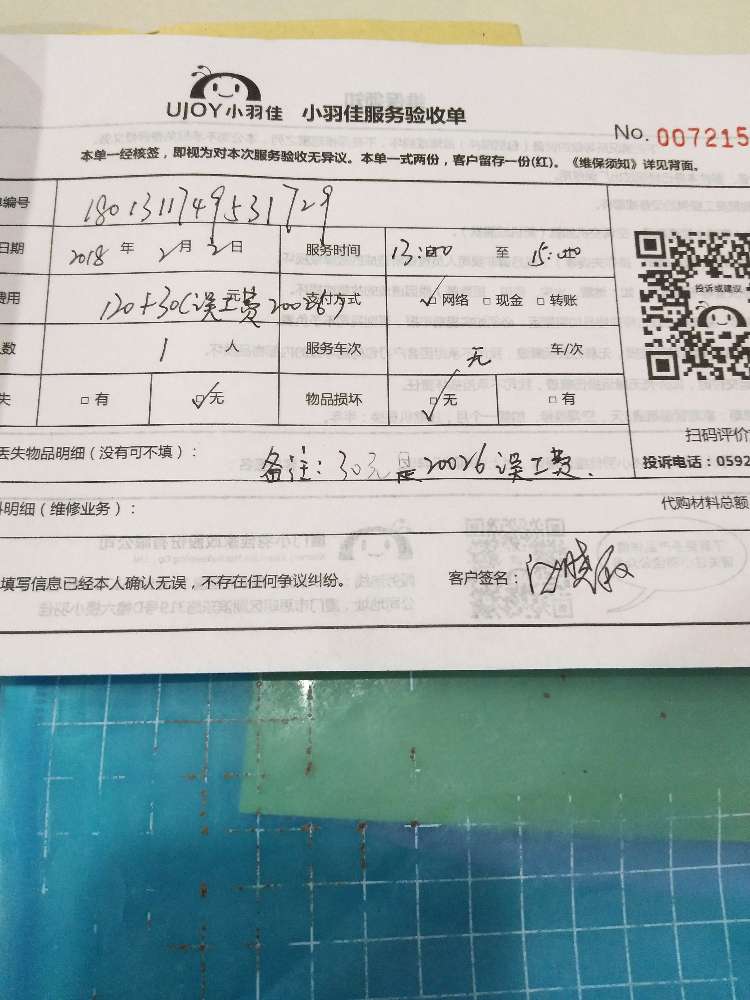 UJOY小羽佳 小羽佳服务验收单
No. 007215
本单一经核签，即视为对本次服务验收无异议。本单一式两份，客户留存一份(红)。《维保须知》详见背面。
编号 1801311749531729
日期 2018 年 2 月 2 日 服务时间 13:00 至 15:00
费用 120+30(误工费20026) 元 支付方式 网络 现金 转账
人数 1 人 服务车次 无 车/次
失 有 无 物品损坏 无 有
投诉或建议
扫码评价
丢失物品明细（没有可不填）： 备注：30元是20026误工费. 投诉电话：0592
料明细（维修业务）： 代购材料总额
填写信息已经本人确认无误，不存在任何争议纠纷。 客户签名：